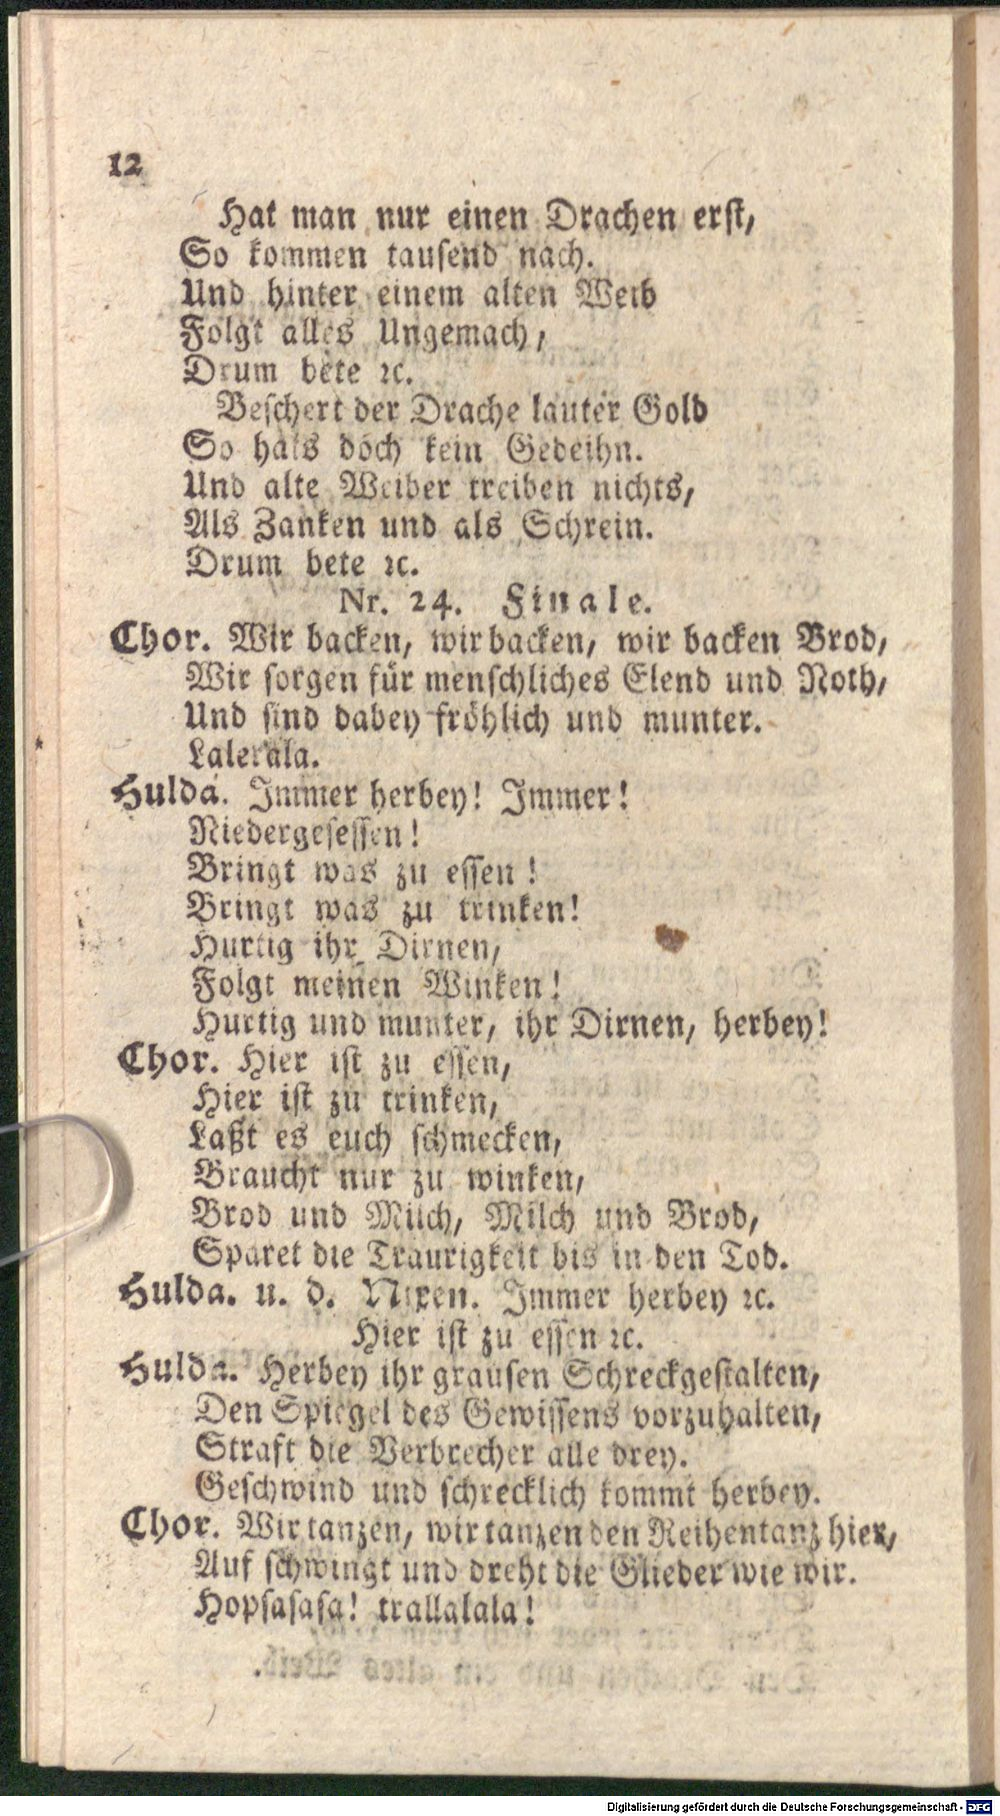 12
Hat man nur einen Drachen erst,
So kommen tausend nach.
Und hinter einem alten Weib
Folgt alles Ungemach,
Drum bete ꝛc.
Beschert der Drache lauter Gold
So hats doch kein Gedeihn.
Und alte Weiber treiben nichts,
Als Zanken und als Schrein.
Drum bete ꝛc.
Nr. 24. Finale.
Chor. Wir backen, wir backen, wir backen Brod,
Wir sorgen für menschliches Elend und Noth,
Und sind dabey fröhlich und munter.
Lalerala.
Hulda. Immer herbey! Immer!
Niedergesessen!
Bringt was zu essen!
Bringt was zu trinken!
Hurtig ihr Dirnen,
Folgt meinen Winken!
Hurtig und munter, ihr Dirnen, herbey!
Chor. Hier ist zu essen,
Hier ist zu trinken,
Laßt es euch schmecken,
Braucht nur zu winken,
Brod und Milch, Milch und Brod,
Sparet die Traurigkeit bis in den Tod.
Hulda. u. d. Nixen. Immer herbey ꝛc.
Hier ist zu essen ꝛc.
Hulda. Herbey ihr grausen Schreckgestalten,
Den Spiegel des Gewissens vorzuhalten,
Straft die Verbrecher alle drey.
Geschwind und schrecklich kommt herbey.
Chor. Wir tanzen, wir tanzen den Reihentanz hier,
Auf schwingt und dreht die Glieder wie wir.
Hopsasasa! trallalala!
Digitalisierung gefördert durch die Deutsche Forschungsgemeinschaft - DFG